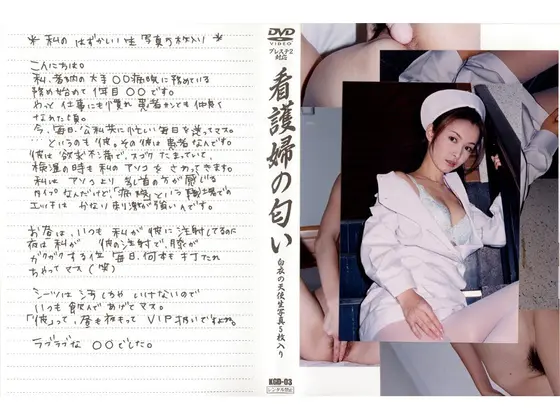 * 私の はずかしい生写真5枚入り *
こんにちは。
私、都内の大手〇〇病院に務めている
務め始めて1年目〇〇です。
やっと仕事にも慣れ 患者さんとも仲良く
なれた頃。
今、毎日、公私共に忙しい毎日を送ってマス。
…というのも彼。その彼は患者なんです。
彼は 欲求不満で、スゴク たまっていて、
検温の時も 私の アソコ を さわってきます。
私は アソコ より 乳首の方が 感じる
タイプなんだけど、「病院」という 職場での
エッチは かなり 刺激が強いんです。
お昼は、いつも 私が 彼に 注射してるのに
夜は 私が 彼の注射で、膝が
ガクガクする位 毎日、何本も 打たれ
ちゃって マス(笑)
シーツは 汚しちゃ いけないので
いつも 飲んで あげて マス。
「彼」って、昼も夜もって VIP扱いですよね。
ラブラブな 〇〇でした。
DVD
VIDEO
プレステ2
対応
看護婦の匂い
白衣の天使生写真5枚入り
KGD-03
レンタル禁止